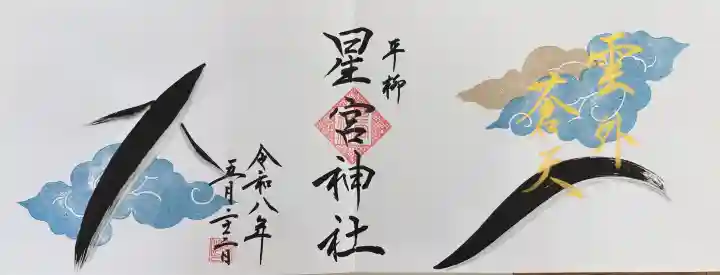 雲外
蒼天
平柳
星宮神社
令和八年
五月二十三日